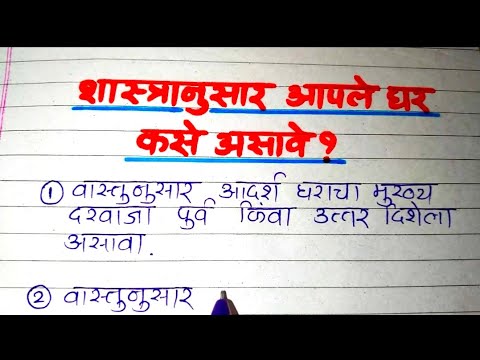 शास्त्रानुसार आपले घर
कसे असावे ?
① वास्तुनुसार आदर्श घराचा मुख्य
दरवाजा पुर्व किंवा उत्तर दिशेला
असावा.
② वास्तुनुसार